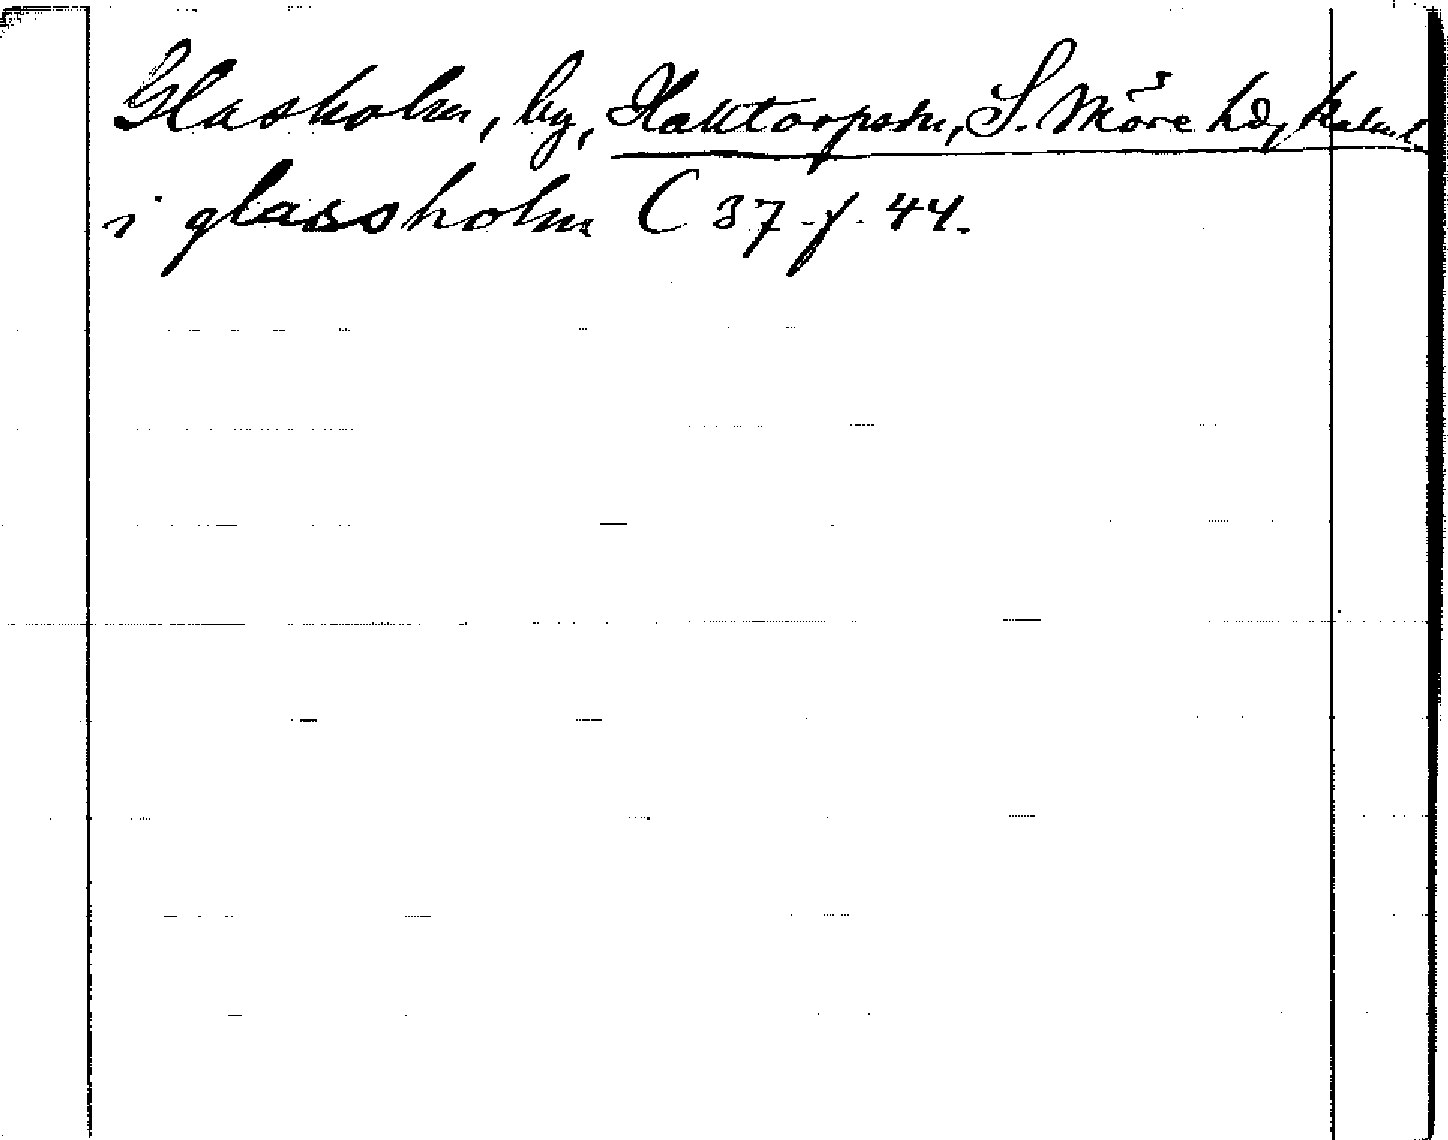 Glasholm, by, Halltorps sn, S. Möre hd, Kalm. l.
i glassholm C 37 f. 44.